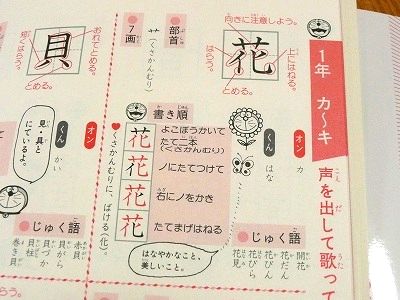 1年 カ〜キ
声を出して歌って
向きに注意しよう。
花
上にはねる。
はらう。
とめる。
オン
カ
くん
はな
じゅく語
開花
花だん
花びん
花びら
花見
部首
艹(くさかんむり)
7画
書き順
花
よこぼうかいて
たて二本
(くさかんむり)
花
ノにたてつけて
花
右にノをかき
花
たてまげはねる
くさかんむりに、ばける(化)。
はなやかなこと、
美しいこと。
貝
おれてとめる。
短くはらう。
とめる。
オン
くん
かい
見・具と
にているよ。
じゅく語
赤貝
貝がら
貝づか
巻き貝